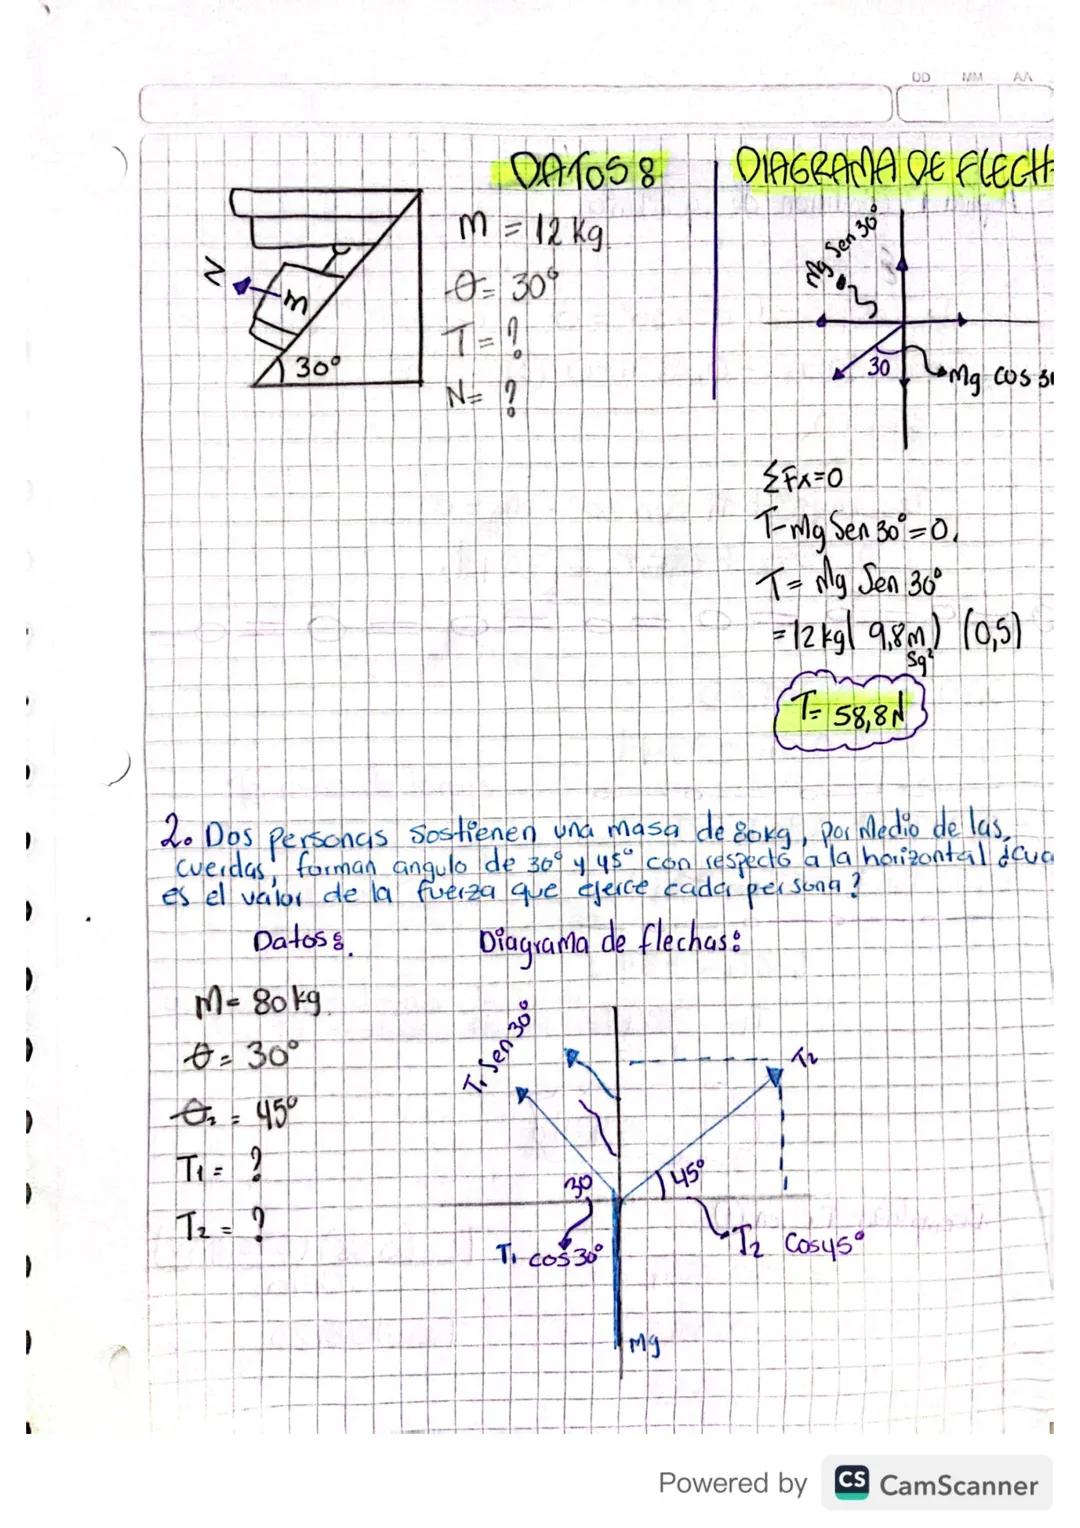 DD MM AA
DATOS:
DIAGRAMA DE FLECH
m = 12 kg
θ = 30°
T = ?
N = ?
N
m
30°
Mg Sen 30°
30
Mg cos 3
ΣFx=0
T-Mg Sen 30°=0.
T= Mg Sen 30°
=12kg( 9,8m) (0,5)
Sg²
T= 58,8N
2. Dos personas sostienen una masa de 80kg, por Medio de las,
cuerdas, forman angulo de 30° y 45° con respecto a la horizontal ¿cua
es el valor de la fuerza que ejerce cada persona?
Datos:.
Diagrama de flechas:
M= 80kg.
θ = 30°
θ₂ = 45°
T₁ = ?
T₂ = ?
T₁ Sen 30°
T₂
30
45°
T₁ cos 30°
T₂ Cos45°
Mg
Powered by CS CamScanner